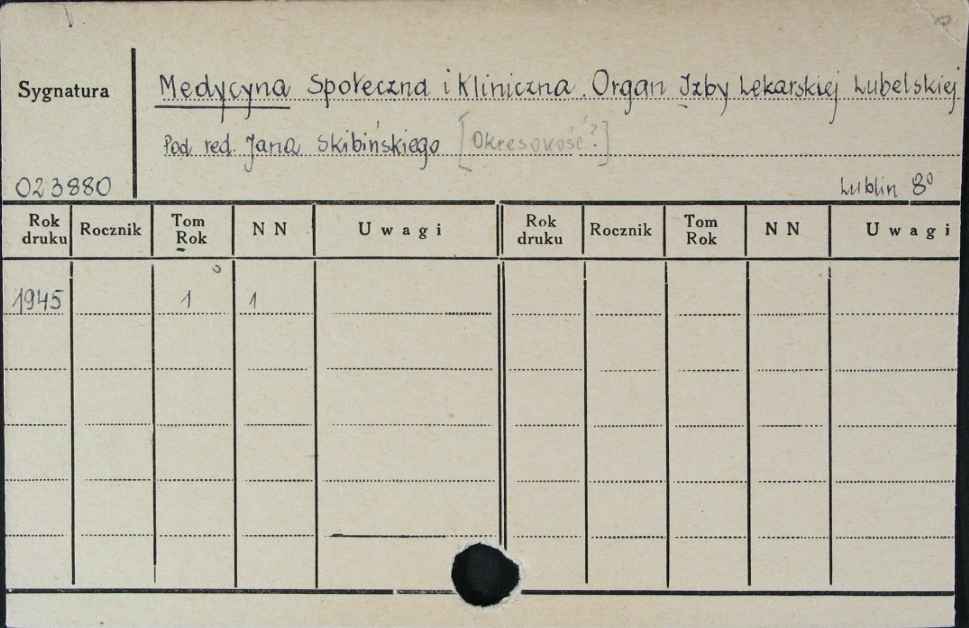 Sygnatura
Medycyna Społeczna i Kliniczna. Organ Izby Lekarskiej Lubelskiej
Pod red. Jana Skibińskiego [Okresowość?]
023880
Lublin 8°
Rok druku Rocznik Tom Rok N N Uwagi Rok druku Rocznik Tom Rok N N Uwagi
1945 1 1